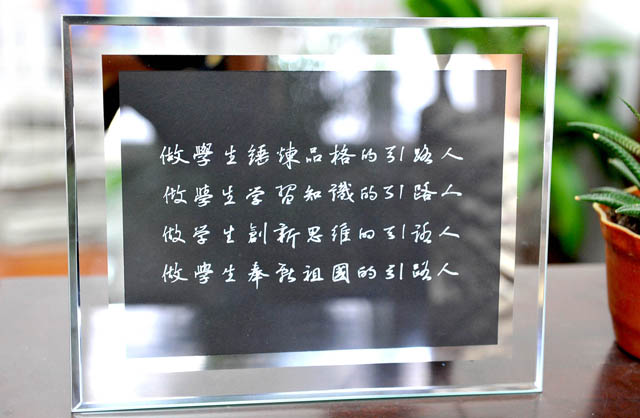 做學生錘煉品格的引路人
做學生学習知識的引路人
做学生創新思维的引路人
做學生奉献祖國的引路人